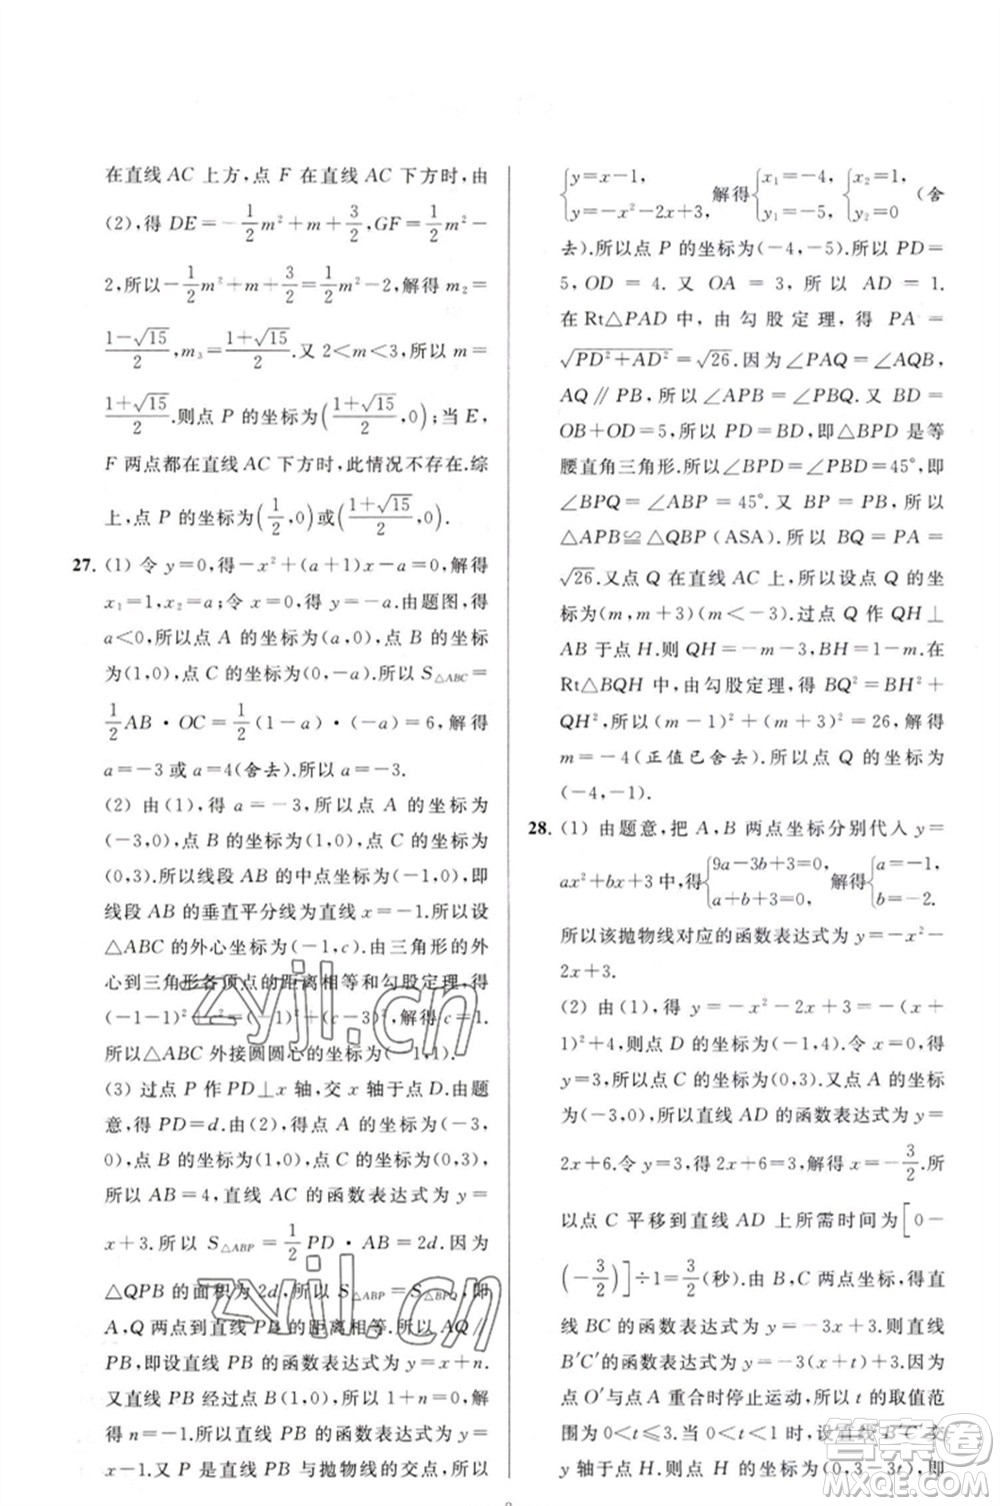 在直线 AC 上方,点 F 在直线 AC 下方时,由
(2),得 DE=-1/2m²+m+3/2,GF=1/2m²-
2,所以-1/2m²+m+3/2=1/2m²-2,解得 m₂=
(1-√15)/2,m₃=(1+√15)/2.又 2<m<3,所以 m=
(1+√15)/2.则点 P 的坐标为((1+√15)/2,0);当 E,
F 两点都在直线 AC 下方时,此情况不存在.综
上,点 P 的坐标为(1/2,0)或((1+√15)/2,0).
27. (1) 令 y=0,得-x²+(a+1)x-a=0,解得
x₁=1,x₂=a;令 x=0,得 y=-a.由题图,得
a<0,所以点 A 的坐标为(a,0),点 B 的坐标为
(1,0),点 C 的坐标为(0,-a).所以 S△ABC=
1/2AB·OC=1/2(1-a)·(-a)=6,解得
a=-3 或 a=4(舍去).所以 a=-3.
(2) 由(1),得 a=-3,所以点 A 的坐标为
(-3,0),点 B 的坐标为(1,0),点 C 的坐标为
(0,3).所以线段 AB 的中点坐标为(-1,0),即
线段 AB 的垂直平分线为直线 x=-1.所以设
△ABC 的外心坐标为(-1,c).由三角形的外
心到三角形各顶点的距离相等和勾股定理,得
(-1-1)²+c²=(-1)²+(c-3)²,解得 c=1.
所以△ABC 外接圆圆心的坐标为(-1,1).
(3) 过点 P 作 PD⊥x 轴,交 x 轴于点 D.由题
意,得 PD=d.由(2),得点 A 的坐标为(-3,
0),点 B 的坐标为(1,0),点 C 的坐标为(0,3),
所以 AB=4,直线 AC 的函数表达式为 y=
x+3.所以 S△ABP=1/2PD·AB=2d.又因为
△QPB 的面积为 2d,所以 S△ABP=S△BPQ.所以
A,Q 两点到直线 PB 的距离相等.所以 AQ∥
PB,即设直线 PB 的函数表达式为 y=x+n.
又直线 PB 经过点 B(1,0),所以 1+n=0,解
得 n=-1.所以直线 PB 的函数表达式为 y=
x-1.又 P 是直线与抛物线的交点,所以
{y=x-1, y=-x²-2x+3, 解得{x₁=-4, y₁=-5, {x₂=1, y₂=0 (舍
去).所以点 P 的坐标为(-4,-5).所以 PD=
5,OD=4.又 OA=3,所以 AD=1.
在 Rt△PAD 中,由勾股定理,得 PA=
√(PD²+AD²)=√26.因为∠PAQ=∠AQB,
AQ∥PB,所以∠APB=∠PBQ.又 BD=
OB+OD=5,所以 PD=BD,即△BPD 是等
腰直角三角形.所以∠BPD=∠PBD=45°,即
∠BPQ=∠ABP=45°.又 BP=PB,所以
△APB≌△QBP(ASA).所以 BQ=PA=
√26.又点 Q 在直线 AC 上,所以设点 Q 的坐
标为(m,m+3)(m<-3).过点 Q 作 QH⊥
AB 于点 H.则 QH=-m-3,BH=1-m.在
Rt△BQH 中,由勾股定理,得 BQ²=BH²+
QH²,所以(m-1)²+(m+3)²=26,解得
m=-4(正值已舍去).所以点 Q 的坐标为
(-4,-1).
28. (1) 由题意,把 A,B 两点坐标分别代入 y=
ax²+bx+3 中,得{9a-3b+3=0, a+b+3=0, 解得{a=-1, b=-2.
所以该抛物线对应的函数表达式为 y=-x²-
2x+3.
(2) 由(1),得 y=-x²-2x+3=-(x+
1)²+4,所以点 D 的坐标为(-1,4).令 x=0,
得 y=3,所以点 C 的坐标为(0,3).又点 A 的坐标
为(-3,0),所以直线 AD 的函数表达式为 y=
2x+6.令 y=3,得 2x+6=3,解得 x=-3/2.所
以点 C 平移到直线 AD 上所需时间为[0-
(-3/2)]÷1=3/2(秒).由 B,C 两点坐标,得直
线 BC 的函数表达式为 y=-3x+3.则直线
B′C′的函数表达式为 y=-3(x+t)+3.因为
点 O′与点 A 重合时停止运动,所以 t 的取值范
围为 0<t≤3.当 0<t<1 时,设直线 B′C′交
y 轴于点 H.所以点 H 的坐标为(0,3-3t),即
zyjl.cn
zyjl.cn
答案圈
MXQE.COM